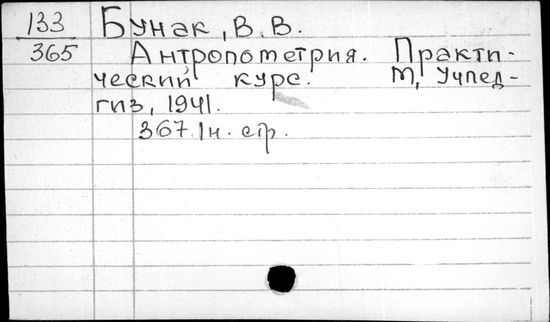 133 Бунак, В. В.
365 Антропометрия. Практи-
ческий курс. М, Учпед-
гиз, 1941.
367 1н. стр.